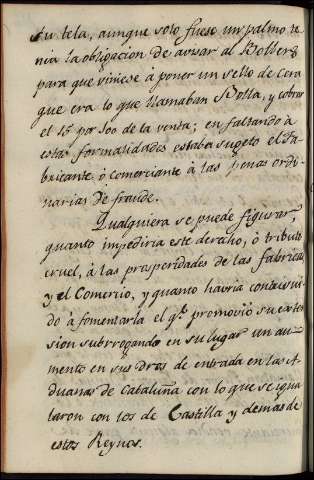 su tela, aunque solo fuese un palmo te
nia la obligacion de avisar al Bollero
para que viniese à poner un sello de Cera
que era lo que llamaban Bolla, y cobrar
el 15 por 100 de la venta; en faltando à
estas formalidades estaba sugeto el Fa-
bricante ò comerciante à las penas ordi-
narias de fraude.
Qualquiera se puede figurar,
quanto impediria este derecho, ò tributo
cruel, à las prosperidades de las fabricas
y el Comercio, y quanto havria contribui
do à fomentarla el q.e promoviò su exten
sion subrrogando en su lugar un au-
mento en sus dros de entrada en las A-
duanas de Cataluña con lo que se igua
laron con los de Castilla y demas de
estos Reynos.